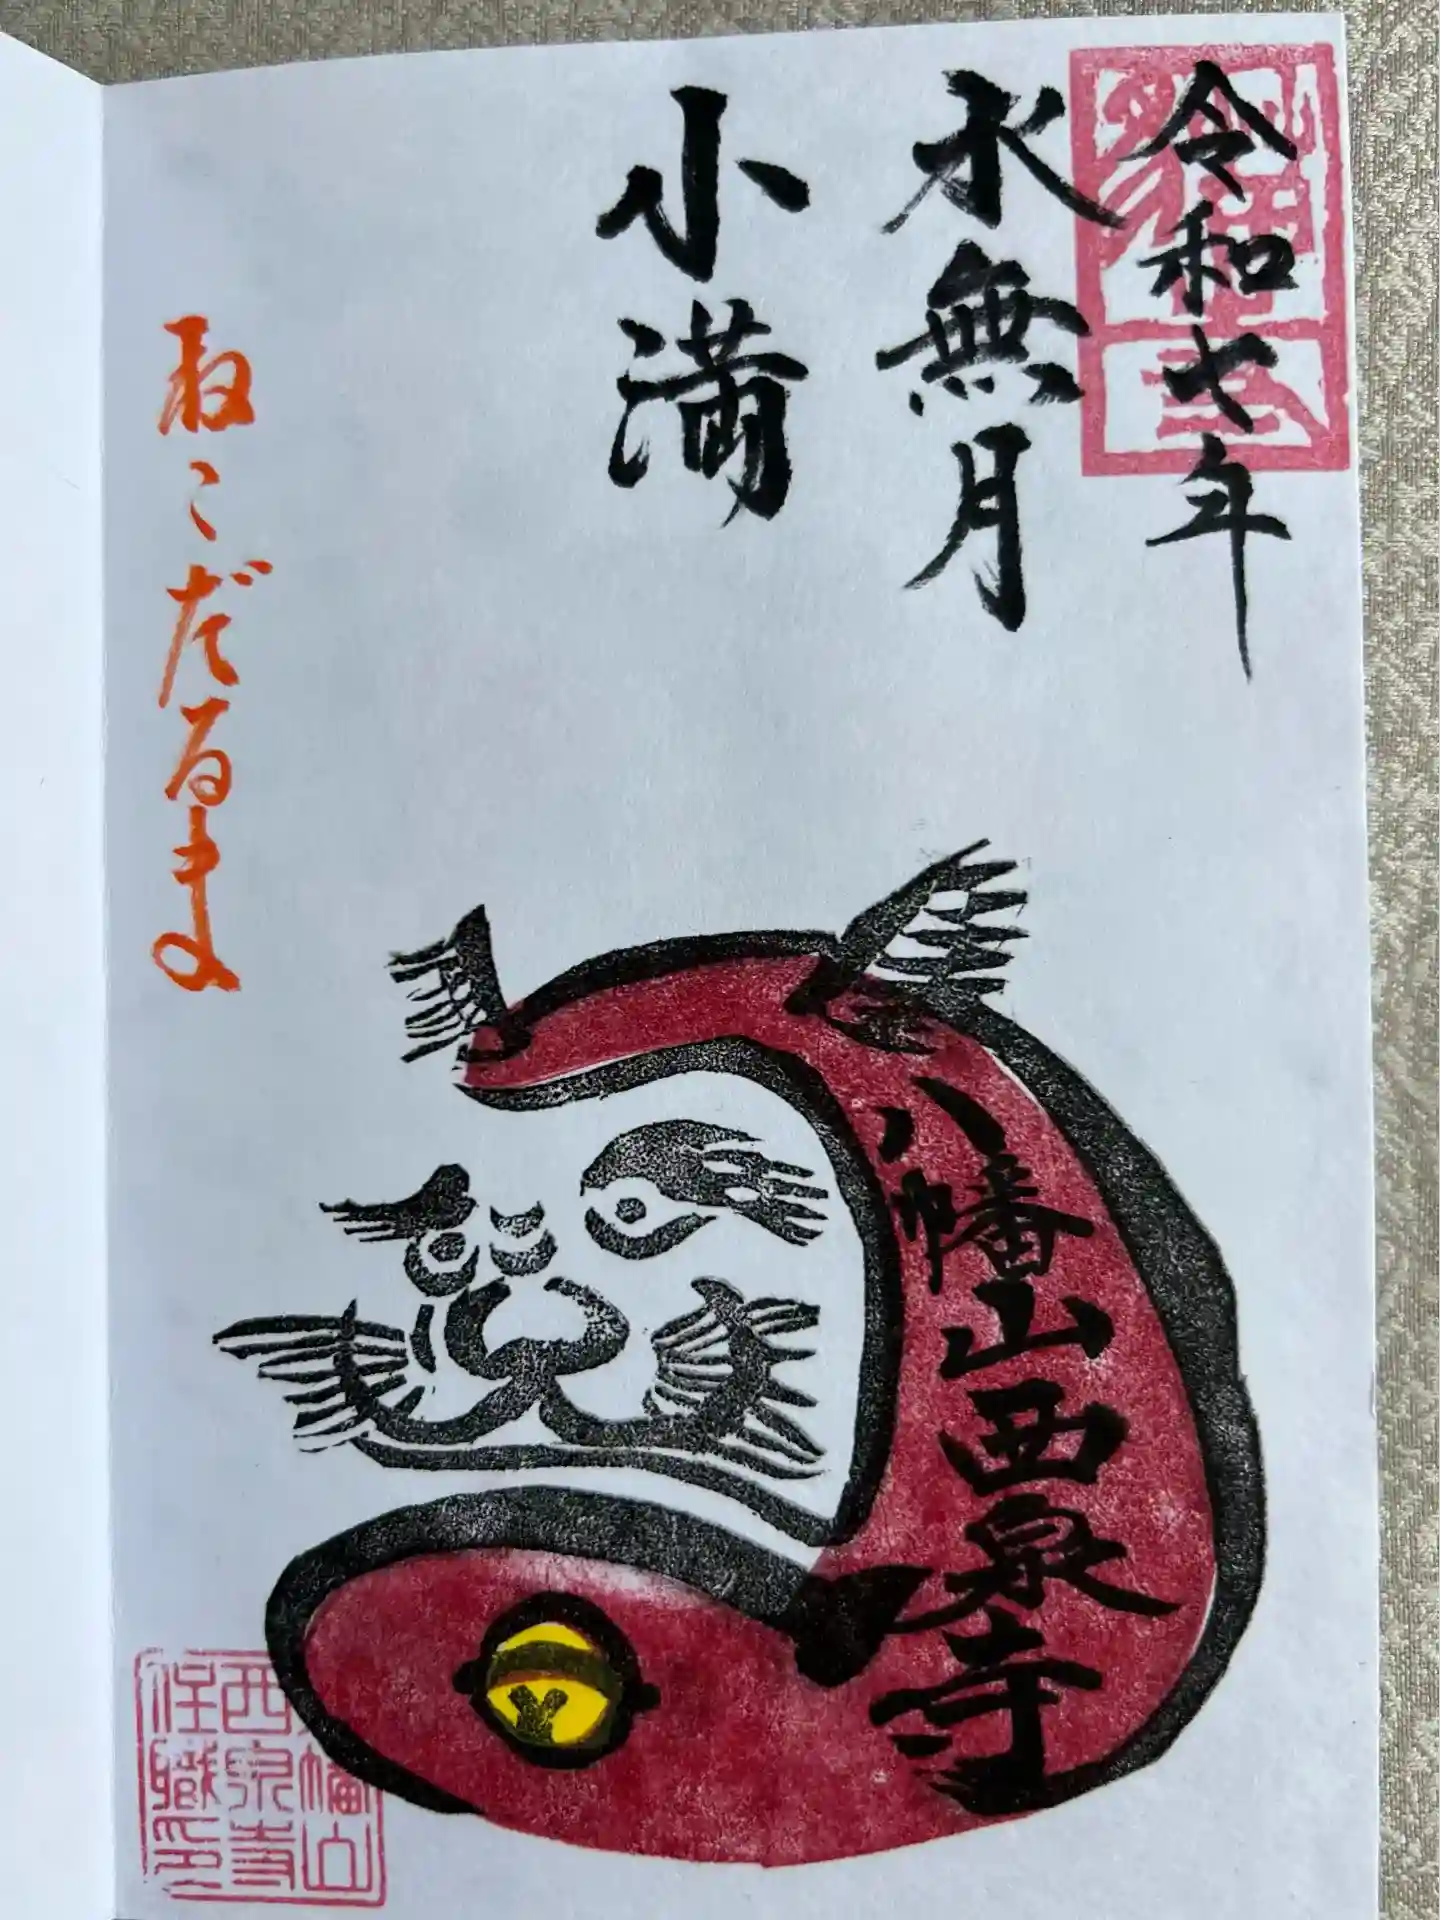 令和七年
水無月
小満
八幡山西泉寺
ねこだるま
八幡山
西泉寺
住職印